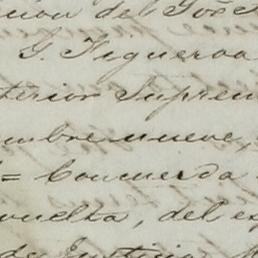 del Tor
G. Figueroa
terior Suprem
mbre nueve,
= Concuerda
vuelta, del ex
de Justicia